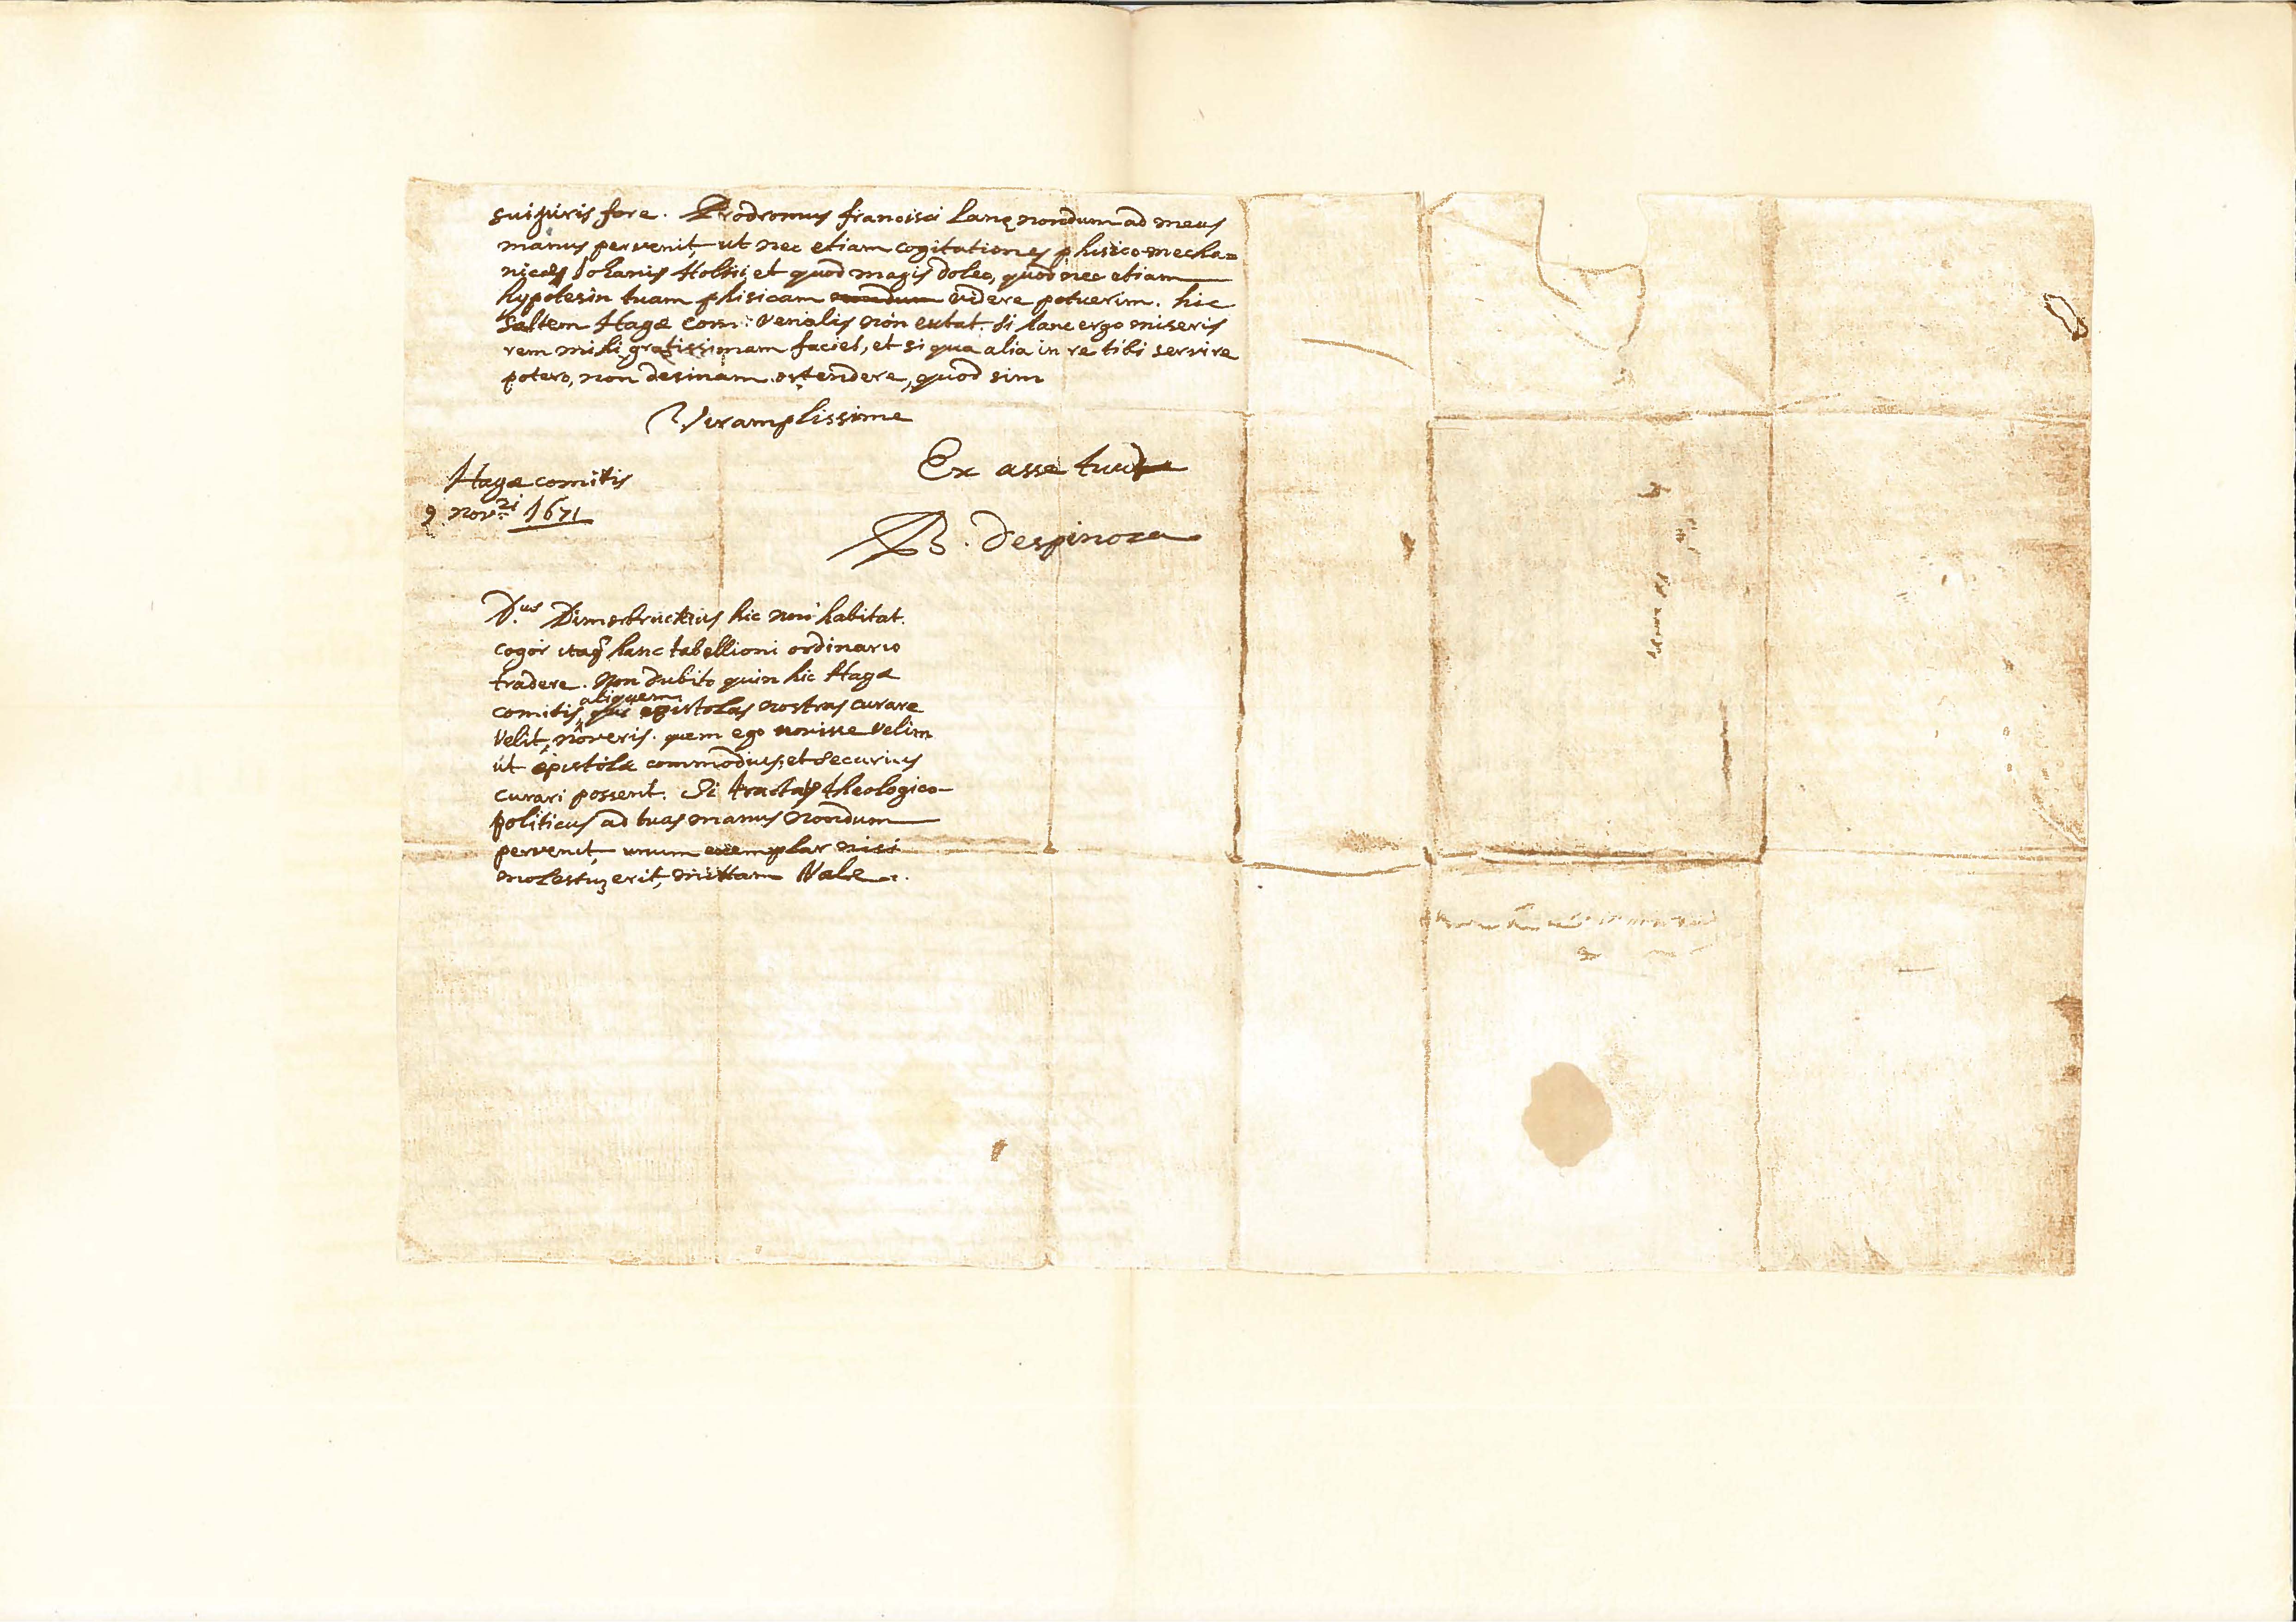 sui juris fore. Prodromus francisci Lanę nondum ad meas
manus pervenit, ut nec etiam cogitationes phisico-mecha=
nicas Johanis Holtii, et quod magis doleo, quod nec etiam
hypotesin tuam phisicam nondum videre potuerim. hic
saltem Hagæ com: venalis non extat. si hanc ergo miseris
rem mihi gratissimam facies, et si qua alia in re tibi servire
potero, non desinam ostendere, quod sim
Vir amplissime
Ex asse tuus
Hagæ comitis
9 novri 1671
B. despinoza
D.us Dimerbruckius hic non habitat.
cogor itaq hanc tabellioni ordinario
tradere. non dubito quin hic Hagæ
aliquem
comitis, qui epistolas nostras curare
velit, noveris. quem ego novisse velim
ut epistolæ commodius, et securius
curari possent. Si tractatus theologico-
politicus ad tuas manus nondum
pervenit, unum exemplar nisi
molestum erit, mittam Vale.